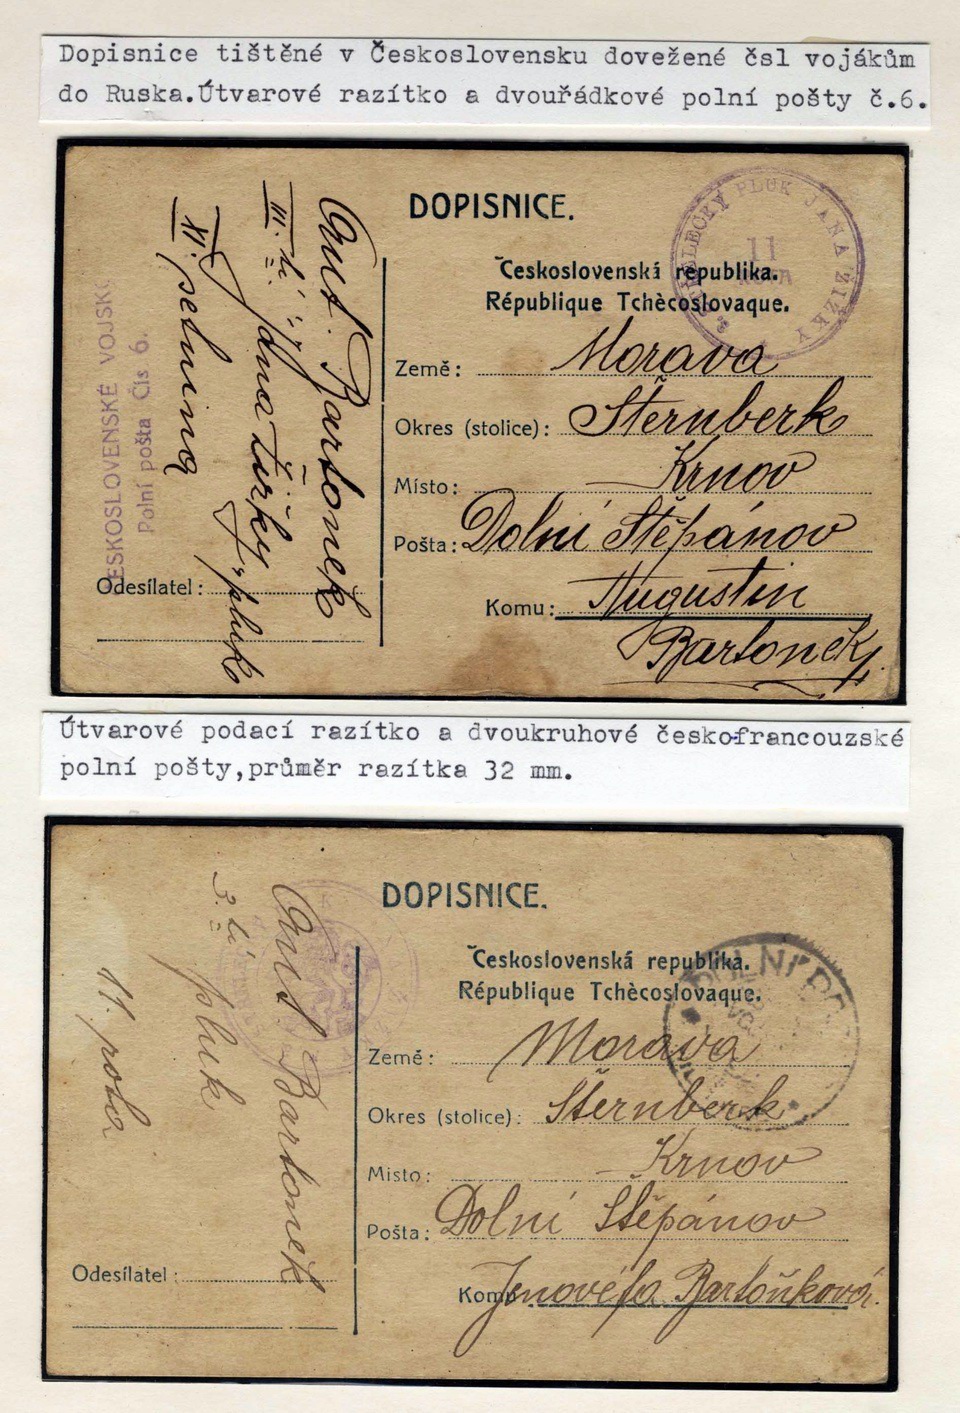 Dopisnice tištěné v Československu dovežené čsl vojákům
do Ruska.Útvarové razítko a dvouřádkové polní pošty č.6.
DOPISNICE.
STŘELECKÝ PLUK JANA ŽIŽKY
11
ROTA
Československá republika.
République Tchècoslovaque.
Země: Morava
Okres (stolice): Šternberk
Místo: Krnov
Pošta: Dolní Štěpánov
Komu: Augustin
Bartoněk
Odesílatel:
Aut. Bartonek
III. tí
Jana Žižky pluk
XI.
ESKOSLOVENSKÉ VOJSK
Polní pošta Čís 6.
Útvarové podací razítko a dvoukruhové česko-francouzské
polní pošty,průměr razítka 32 mm.
DOPISNICE.
Československá republika.
République Tchècoslovaque.
POLNÍ PO
Země: Morava
Okres (stolice): Šternberk
Místo: Krnov
Pošta: Dolní Štěpánov
Komu Jenovéfa Bartoňková
Odesílatel:
Bartonek
3. tí
pluk
11. rota